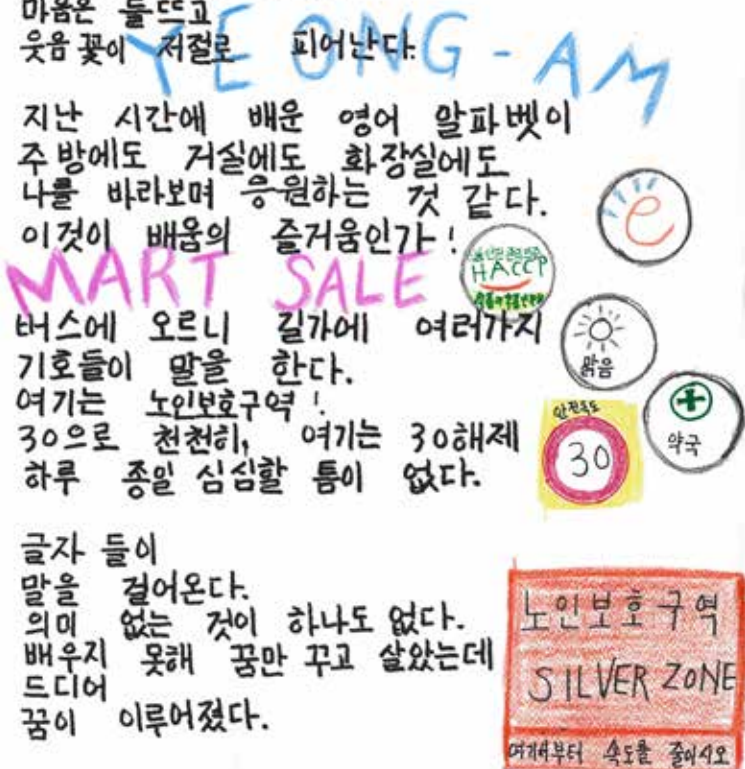 마음은 들뜨고
웃음 꽃이 저절로 피어난다.
YEONG-AM
지난 시간에 배운 영어 알파벳이
주방에도 거실에도 화장실에도
나를 바라보며 응원하는 것 같다.
이것이 배움의 즐거움인가!
e
MART SALE
HACCP
버스에 오르니 길가에 여러가지
기호들이 말을 한다.
맑음
여기는 노인보호구역!
30으로 천천히, 여기는 30해제
하루 종일 심심할 틈이 없다.
안전속도
30
약국
글자 들이
말을 걸어온다.
의미 없는 것이 하나도 없다.
배우지 못해 꿈만 꾸고 살았는데
드디어
꿈이 이루어졌다.
노인보호구역
SILVER ZONE
여기서부터 속도를 줄이시오